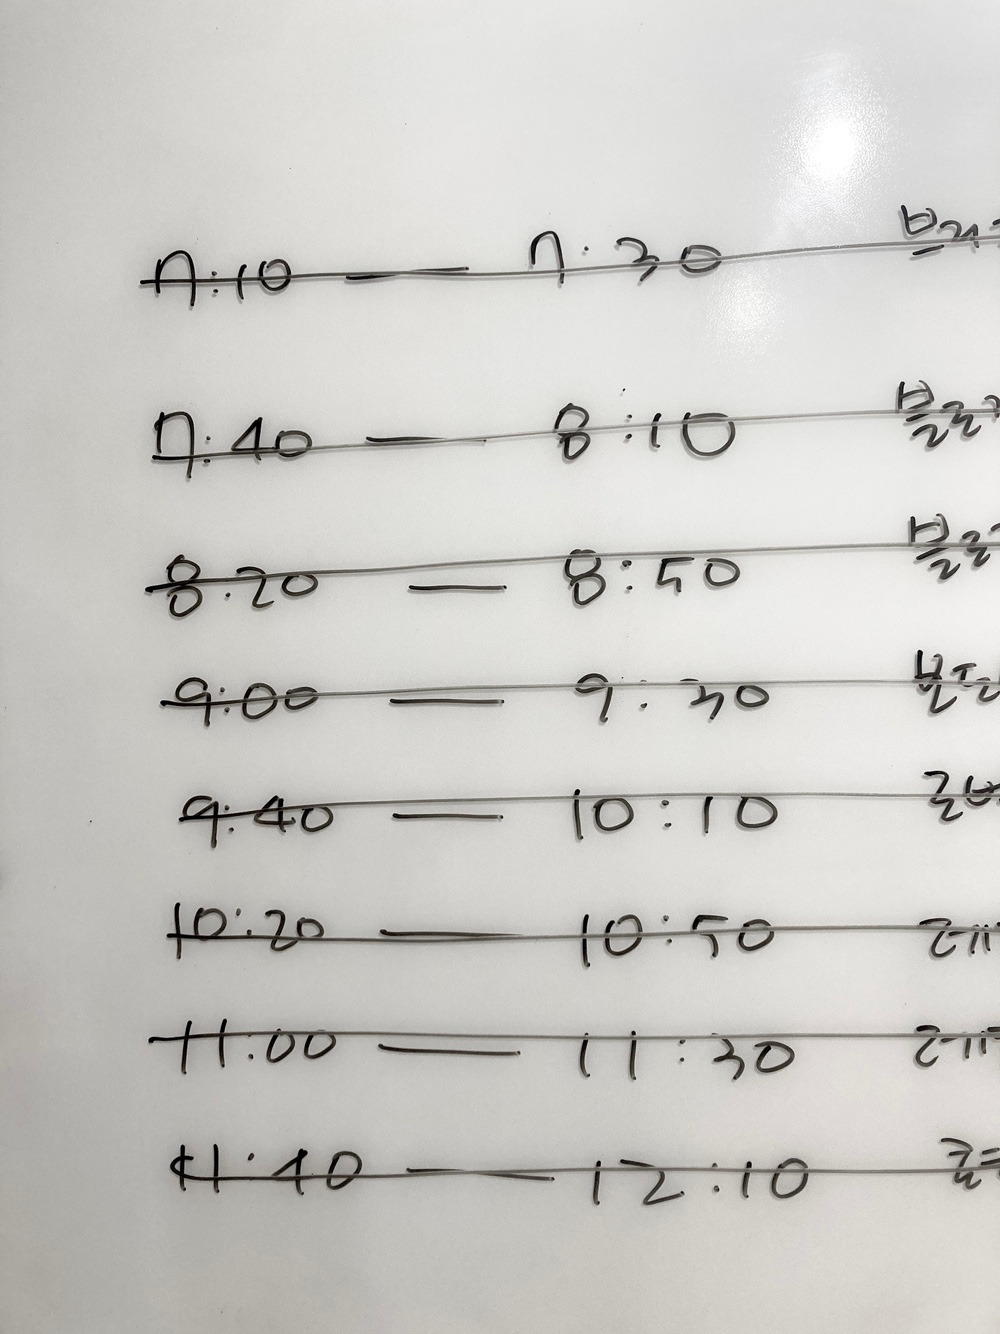 7:10 — 7:30
7:40 — 8:10 블로
8:20 — 8:50 블로
9:00 — 9:30
9:40 — 10:10
10:20 — 10:50
11:00 — 11:30
11:40 — 12:10